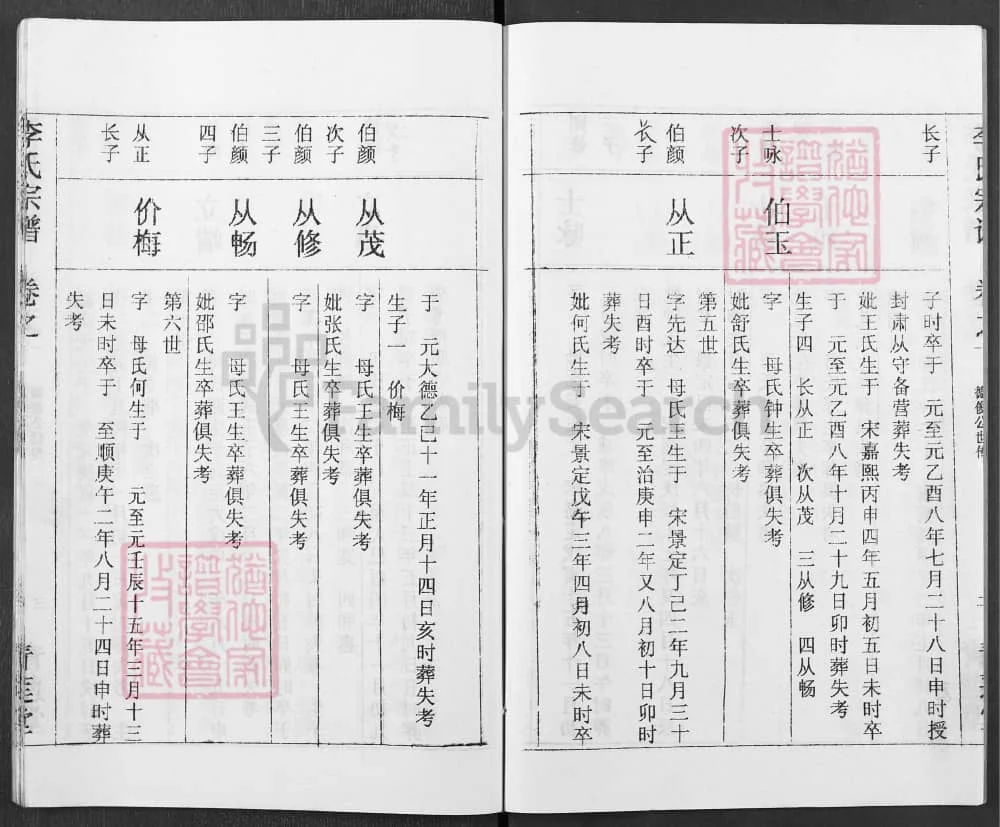 长子
子时卒于　元至元乙酉八年七月二十八日申时授
封肃从守备营葬失考
妣王氏生于　宋嘉熙丙申四年五月初五日未时卒
于　元至元乙酉八年十月二十九日卯时葬失考
生子四　长从正　次从茂　三从修　四从畅
士咏
次子
伯玉
字　母氏钟生卒葬俱失考
妣舒氏生卒葬俱失考
第五世
伯颜
长子
从正
字先达　母氏王生于　宋景定丁己二年九月三十
日酉时卒于　元至治庚申二年又八月初十日卯时
葬失考
妣何氏生于　宋景定戊午三年四月初八日未时卒
于　元大德乙己十一年正月十四日亥时葬失考
生子一　价梅
伯颜
次子
从茂
字　母氏王生卒葬俱失考
妣张氏生卒葬俱失考
伯颜
三子
从修
字　母氏王生卒葬俱失考
伯颜
四子
从畅
字　母氏王生卒葬俱失考
妣邵氏生卒葬俱失考
第六世
从正
长子
价梅
字　母氏何生于　元至元壬辰十五年三月十三
日未时卒于　至顺庚午二年八月二十四日申时葬
失考
李氏宗谱　卷之一
FamilySearch